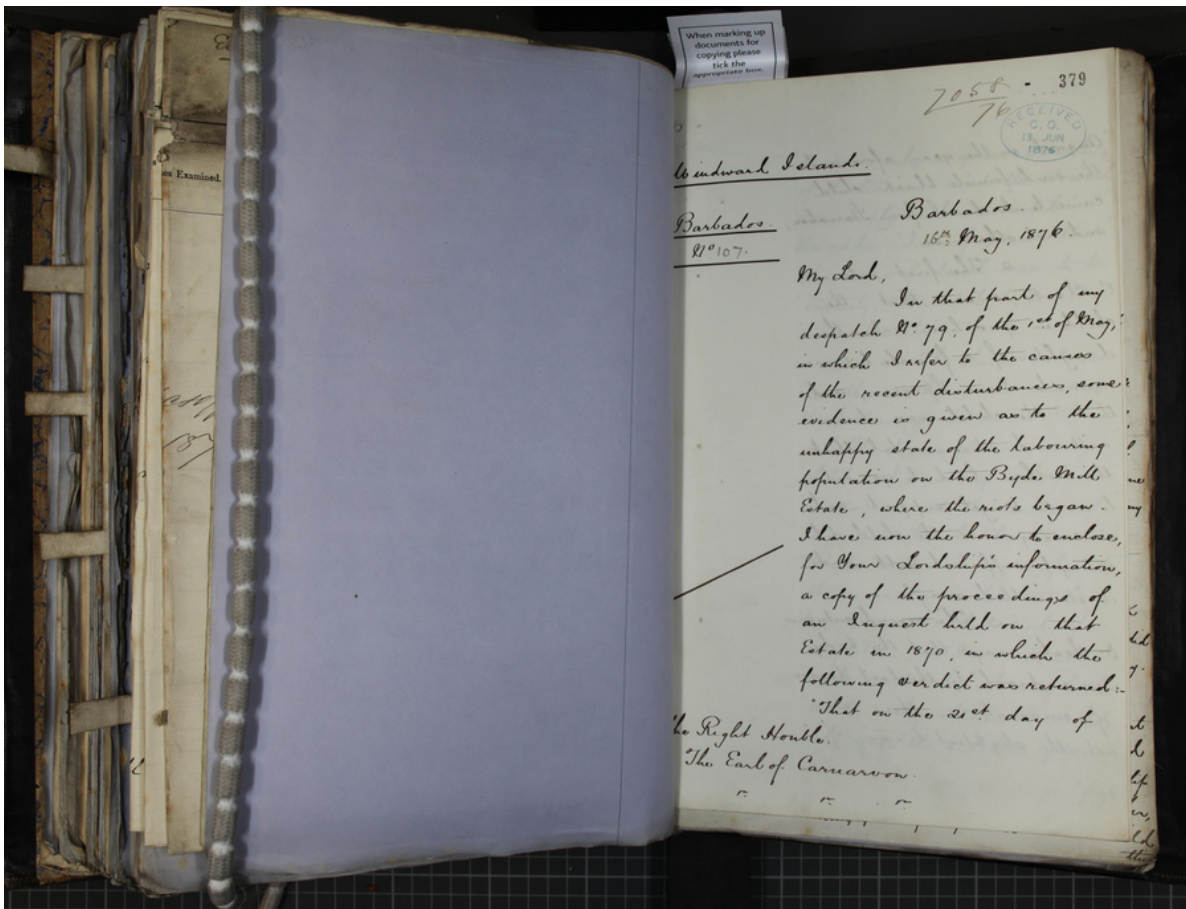 When marking up
documents for
copying please
tick the
appropriate box.
7058
76
- 379
RECEIVED
C.O.
13 JUN
1876
es Examined.
Windward Islands.
Barbados.
Nº 107.
Barbados.
16th May, 1876.
My Lord,
In that part of my
despatch Nº 79, of the 1st of May,
in which I refer to the causes
of the recent disturbances, some
evidence is given as to the
unhappy state of the labouring
population on the Byde Mill
Estate, where the riots began.
I have now the honor to enclose,
for Your Lordship's information,
a copy of the proceedings of
an Inquest held on that
Estate in 1870, in which the
following verdict was returned:-
"That on the 21st day of
The Right Honble.
The Earl of Carnarvon